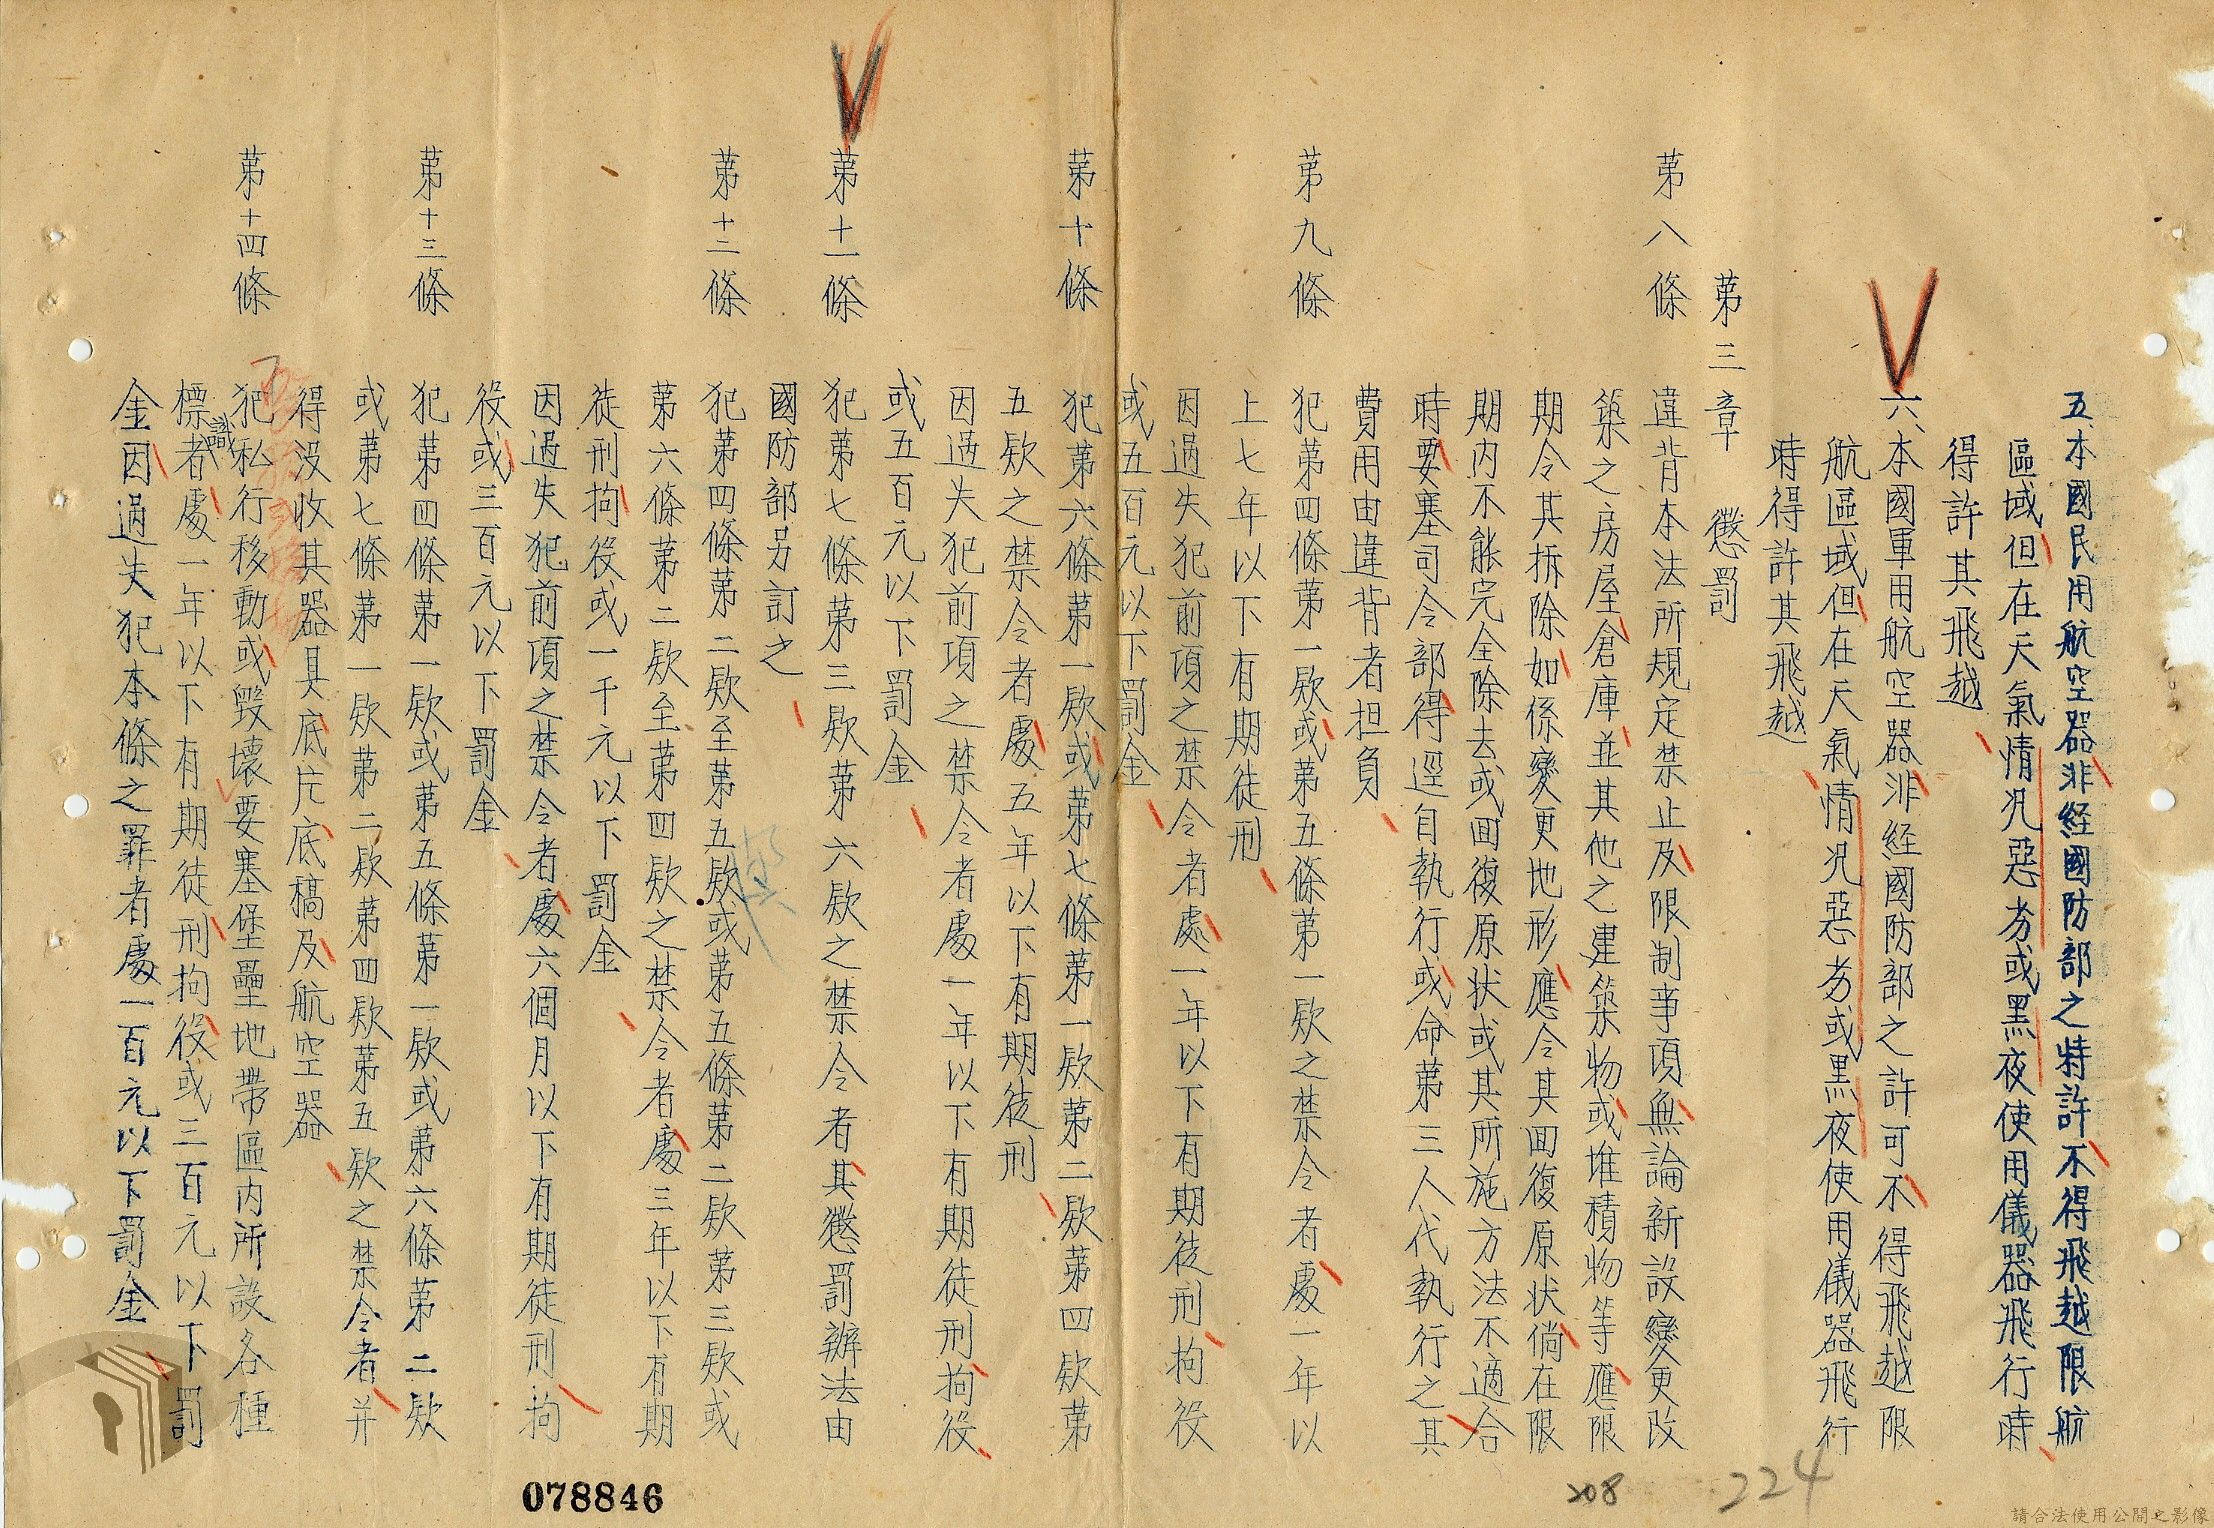 五、本國民用航空器非經國防部之特許不得飛越限航
區域但在天氣情况惡劣或黑夜使用儀器飛行時
得許其飛越
六、本國軍用航空器非經國防部之許可不得飛越限
航區域但在天氣情况惡劣或黑夜使用儀器飛行
時得許其飛越
第三章 懲罰
第八條 違背本法所規定禁止及限制事項無論新設變更改
築之房屋倉庫並其他之建築物或堆積物等應限
期令其拆除如係變更地形應令其囬復原状倘在限
期内不能完全除去或囬復原状或其所施方法不適合
時要塞司令部得逕自執行或命第三人代執行之其
費用由違背者担負
第九條 犯第四條第一欵或第五條第一欵之禁令者處一年以
上七年以下有期徒刑
因過失犯前項之禁令者處一年以下有期徒刑拘役
或五百元以下罰金
第十條 犯第六條第一欵或第七條第一欵第二欵第四欵第
五欵之禁令者處五年以下有期徒刑
因過失犯前項之禁令者處一年以下有期徒刑拘役
或五百元以下罰金
第十一條 犯第七條第三欵第六欵之禁令者其懲罰辦法由
國防部另訂之
第十二條 犯第四條第二欵至第五欵或第五條第二欵第三欵或
第六條第二欵至第四欵之禁令者處三年以下有期
徒刑拘役或一千元以下罰金
因過失犯前項之禁令者處六個月以下有期徒刑拘
役或三百元以下罰金
第十三條 犯第四條第一欵或第五條第一欵或第六條第二欵
或第七條第一欵第二欵第四欵第五欵之禁令者并
得没收其器具底片底稿及航空器
第十四條 犯私行移動或毀壞要塞堡壘地帶區内所設各種
標識者處一年以下有期徒刑拘役或三百元以下罰
金因過失犯本條之罪者處一百元以下罰金
078846
208
224
請合法使用公開之影像